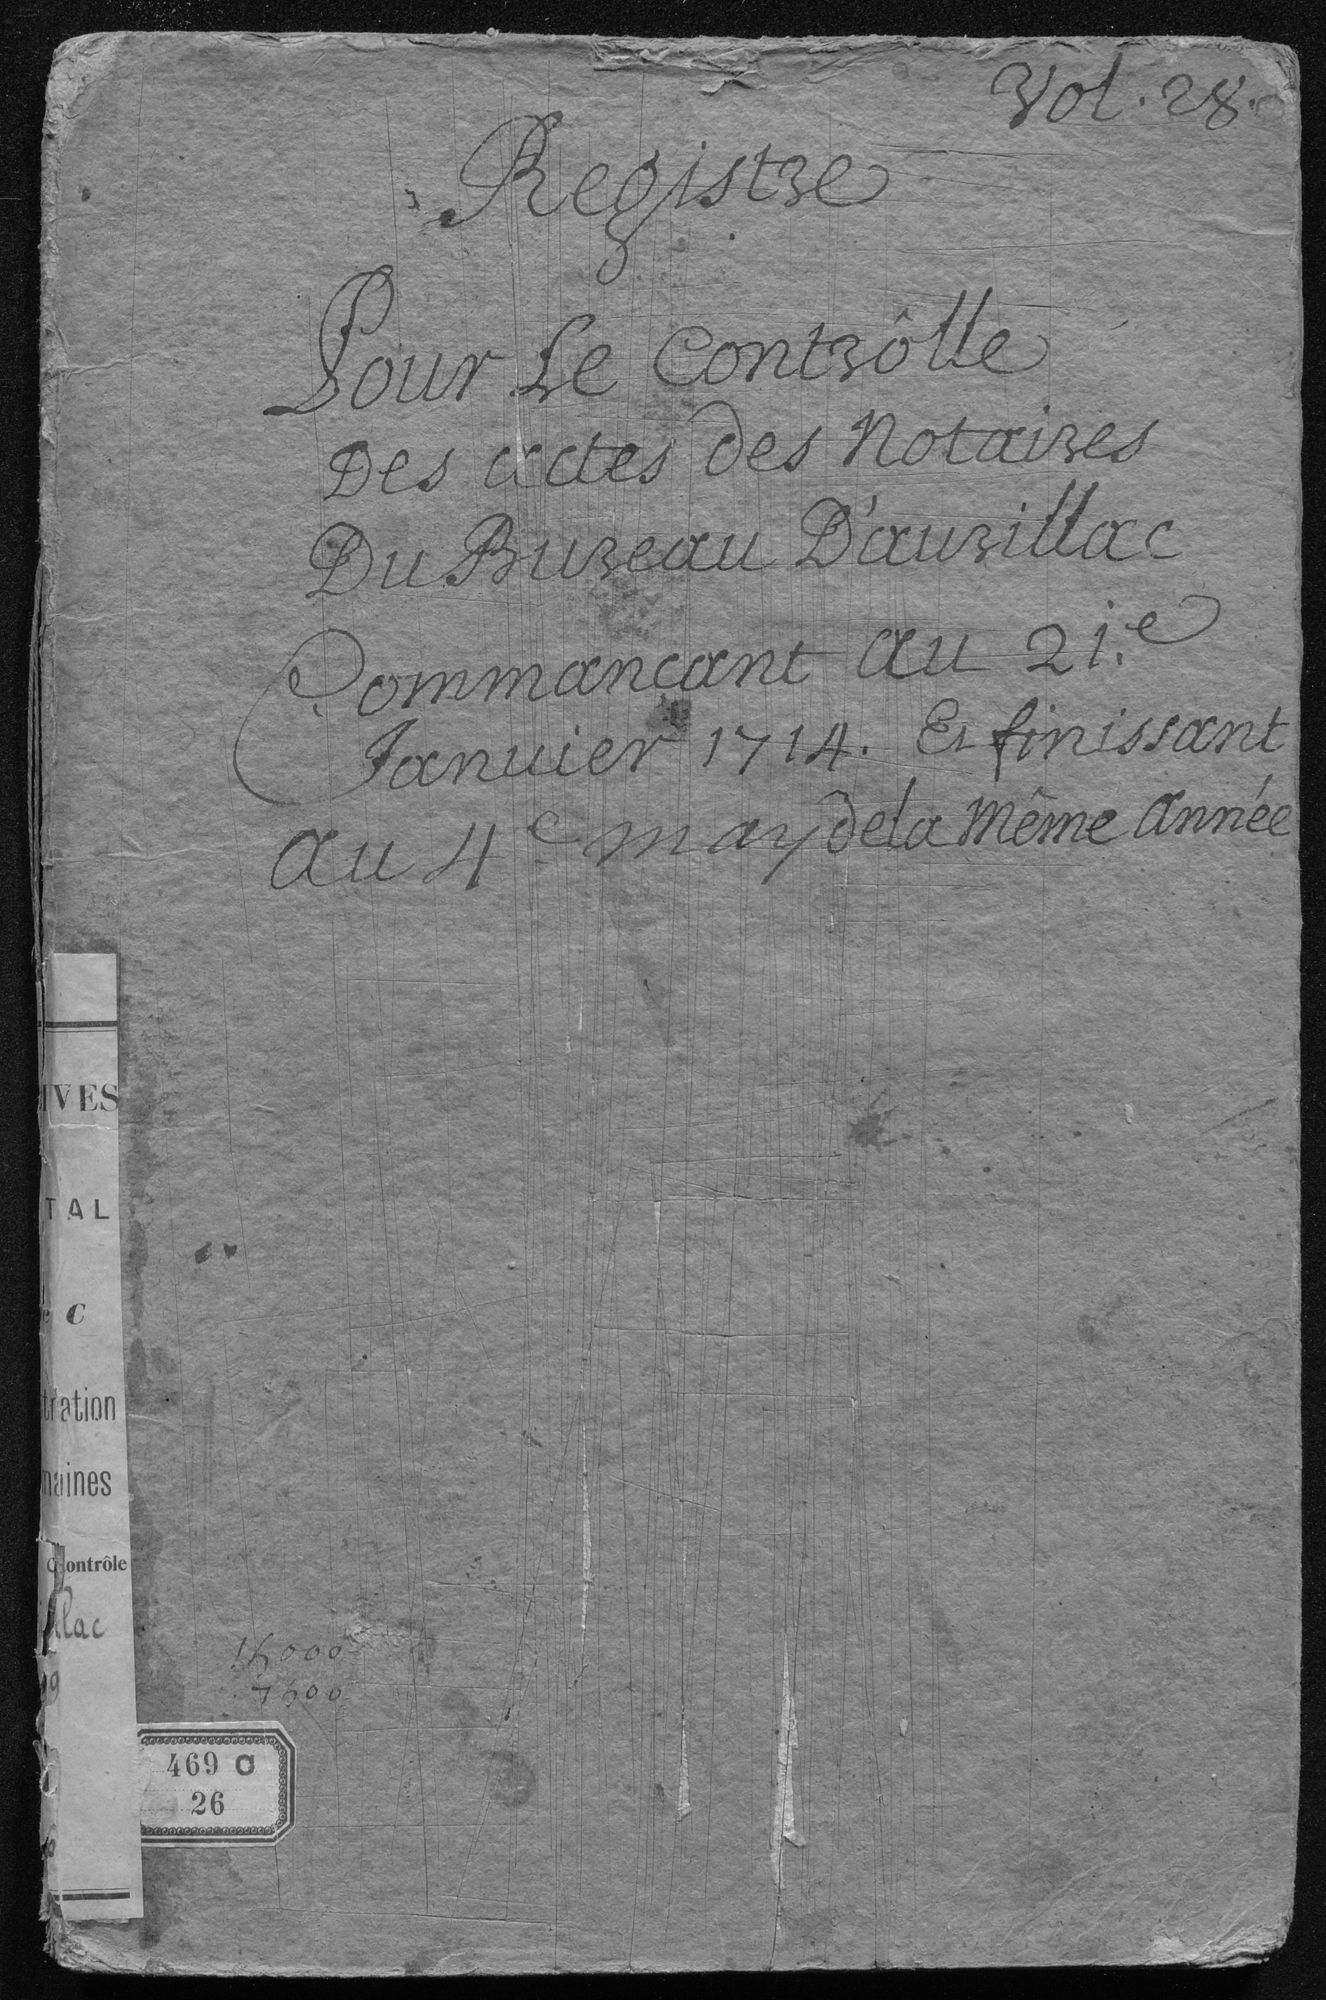 Vol. 28.
Registre
Pour Le Contrôlle
Des actes des Notaires
Du Bureau D'aurillac
Commancant au 21.e
Janvier 1714. Et finissant
au 4e may dela Même Année
IVES
TAL
C
tration
maines
Contrôle
llac
9
15000
7500
469 C
26